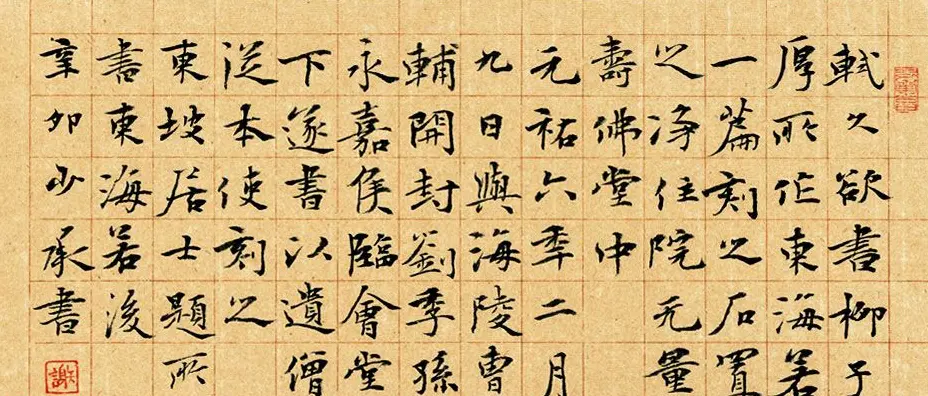 軾久欲書柳子
厚所作東海若
一篇刻之石置
之净住院无量
壽佛堂中
元祐六季二月
九日與海陵曹
輔開封劉季孫
永嘉侯臨會堂
下遂書以遺僧
從本使刻之
東坡居士題所
書東海若後
辛卯少承書
謝